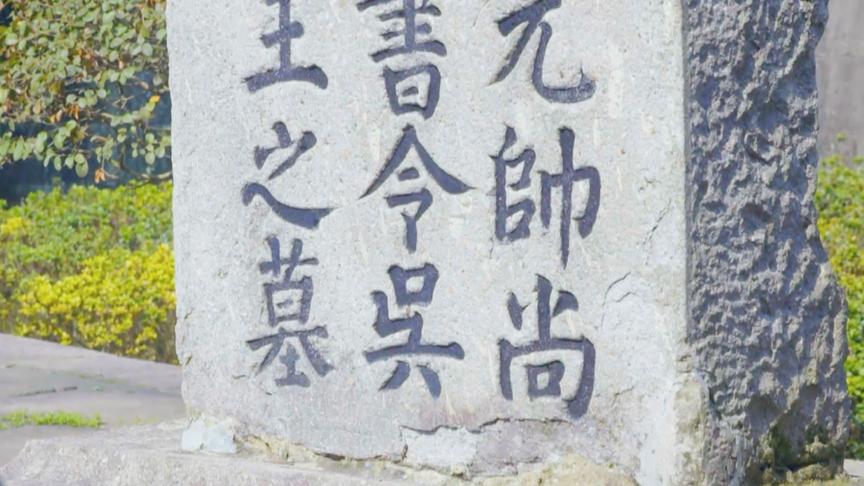 元帥尚
書令吳
王之墓